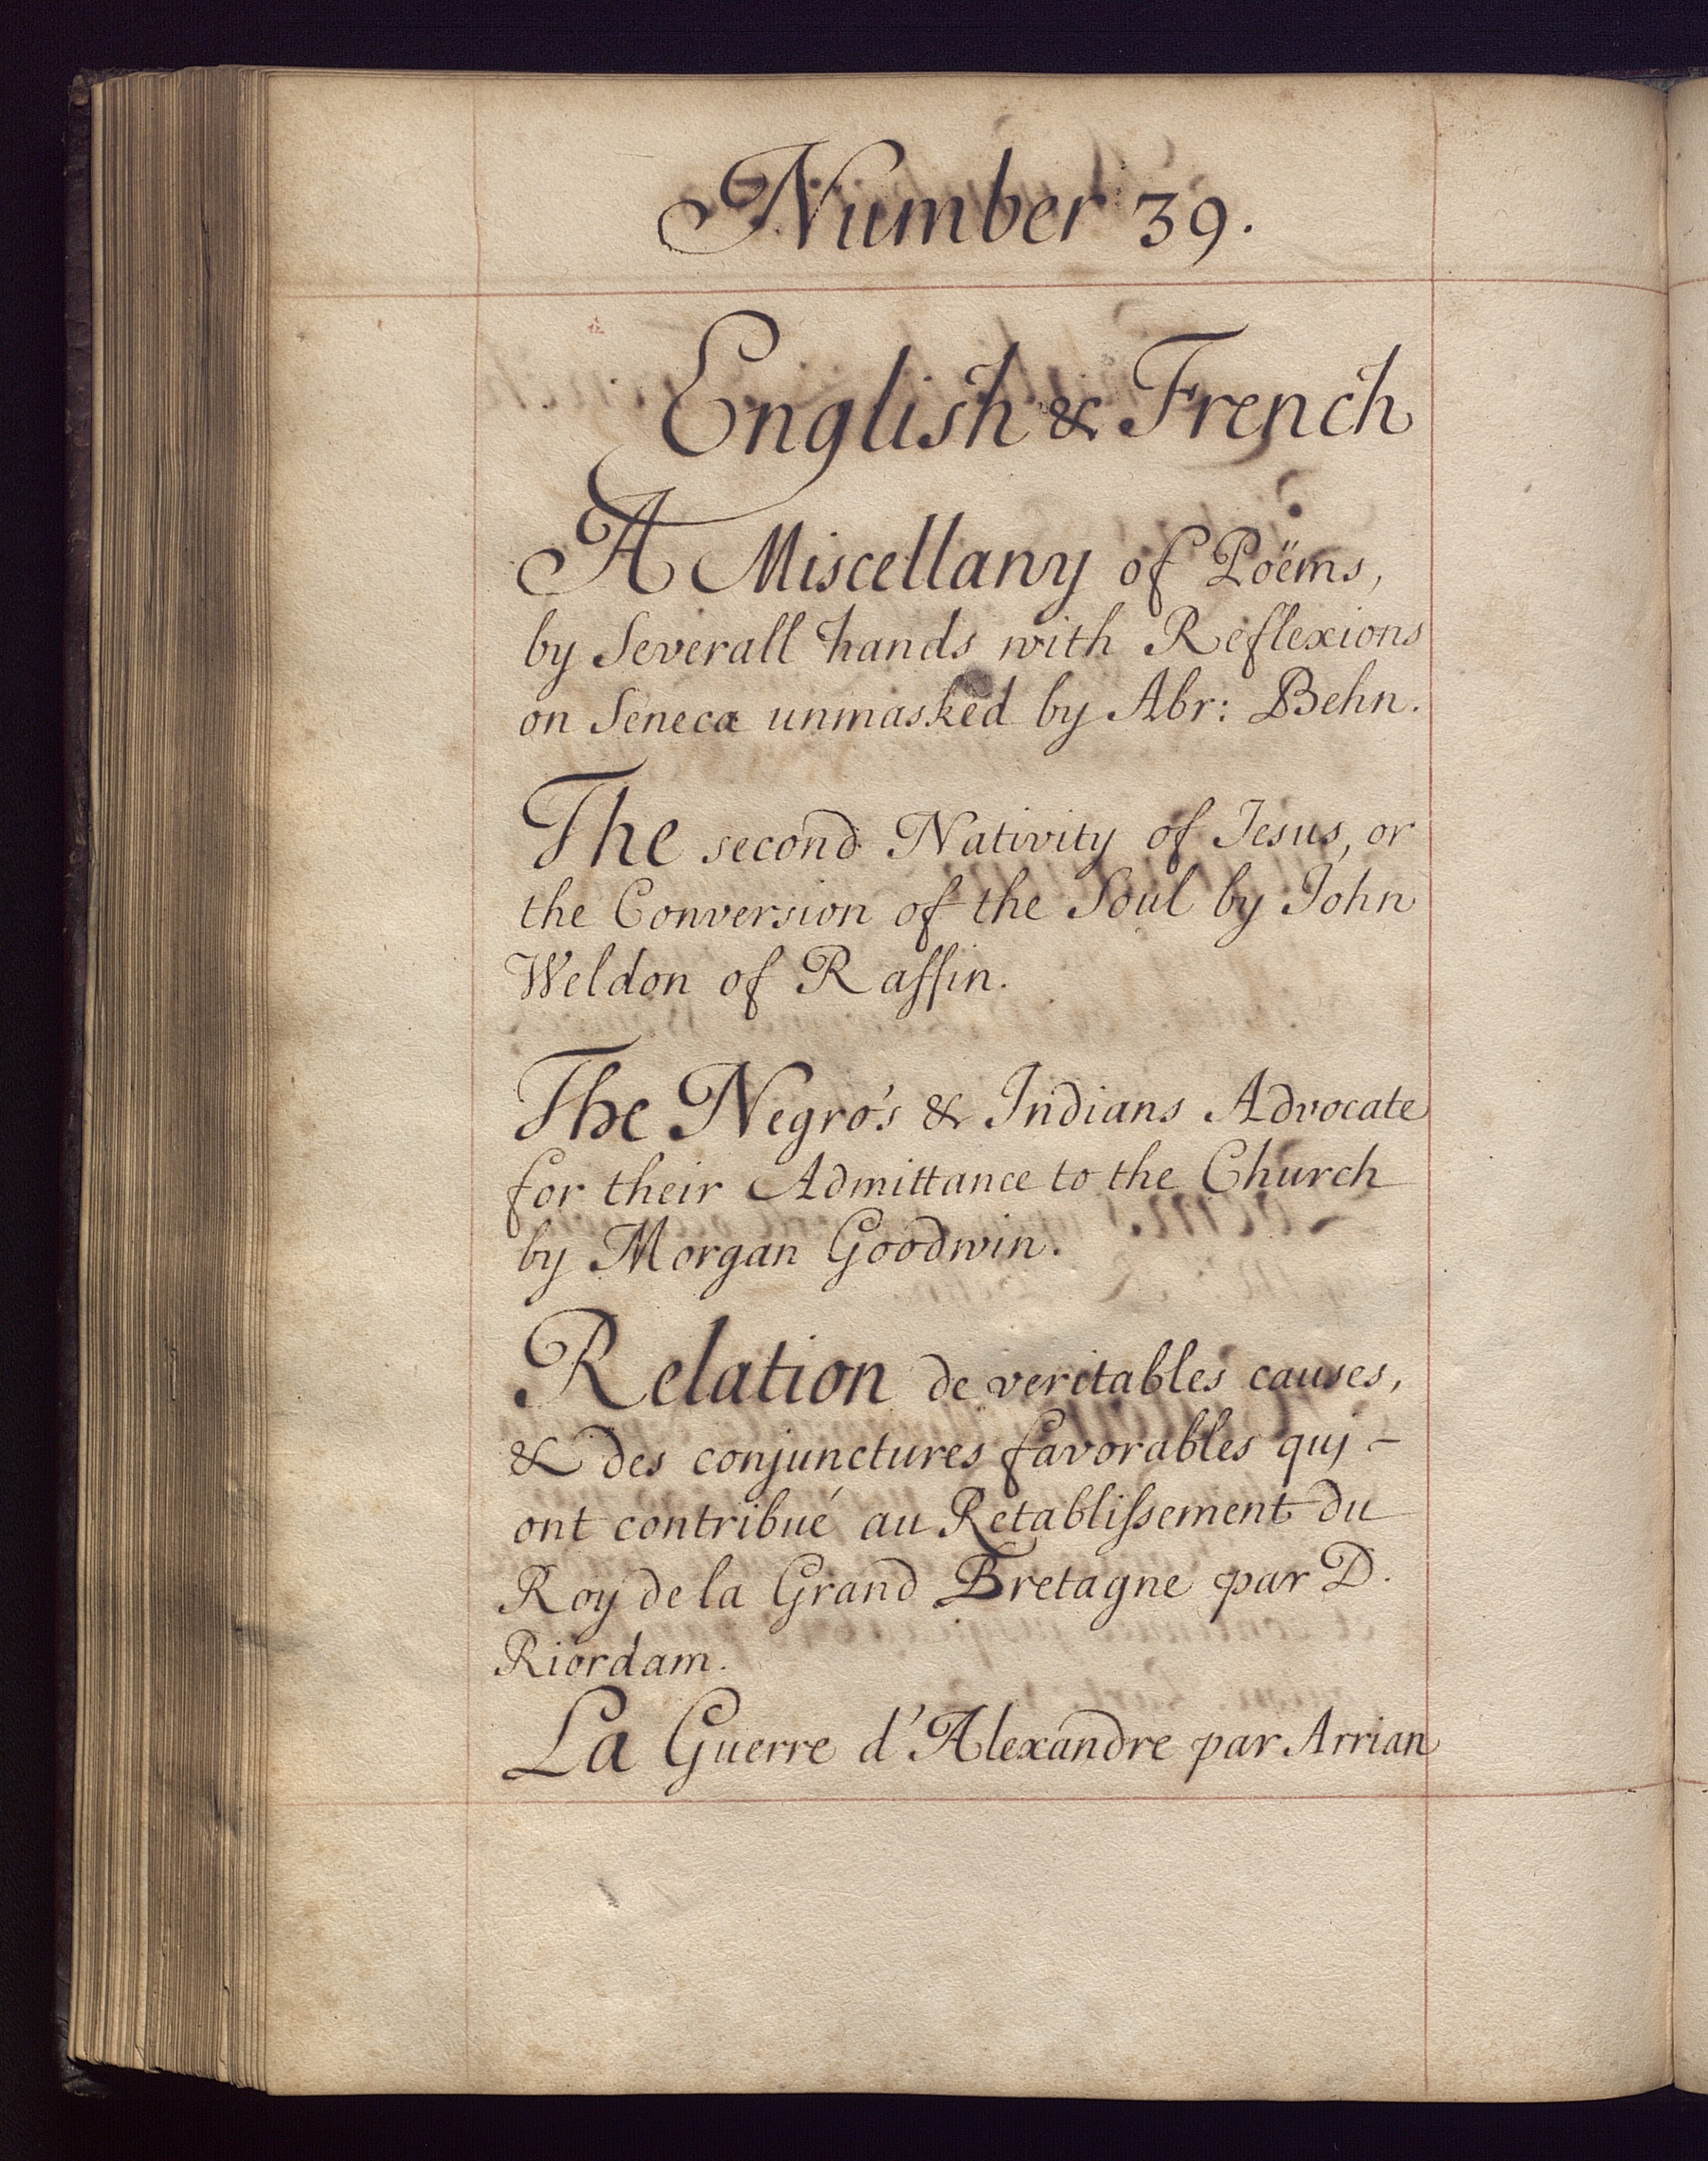 Number 39.
English & French
A Miscellany of Poëms,
by Severall hands with Reflexions
on Seneca unmasked by Abr: Behn.
The second Nativity of Jesus, or
the Conversion of the Soul by John
Weldon of Raffin.
The Negro's & Indians Advocate
for their Admittance to the Church
by Morgan Goodwin.
Relation de veritables causes,
& des conjunctures favorables quj -
ont contribué au Retablissement du
Roy de la Grand Bretagne par D.
Riordam.
La Guerre d'Alexandre par Arrian